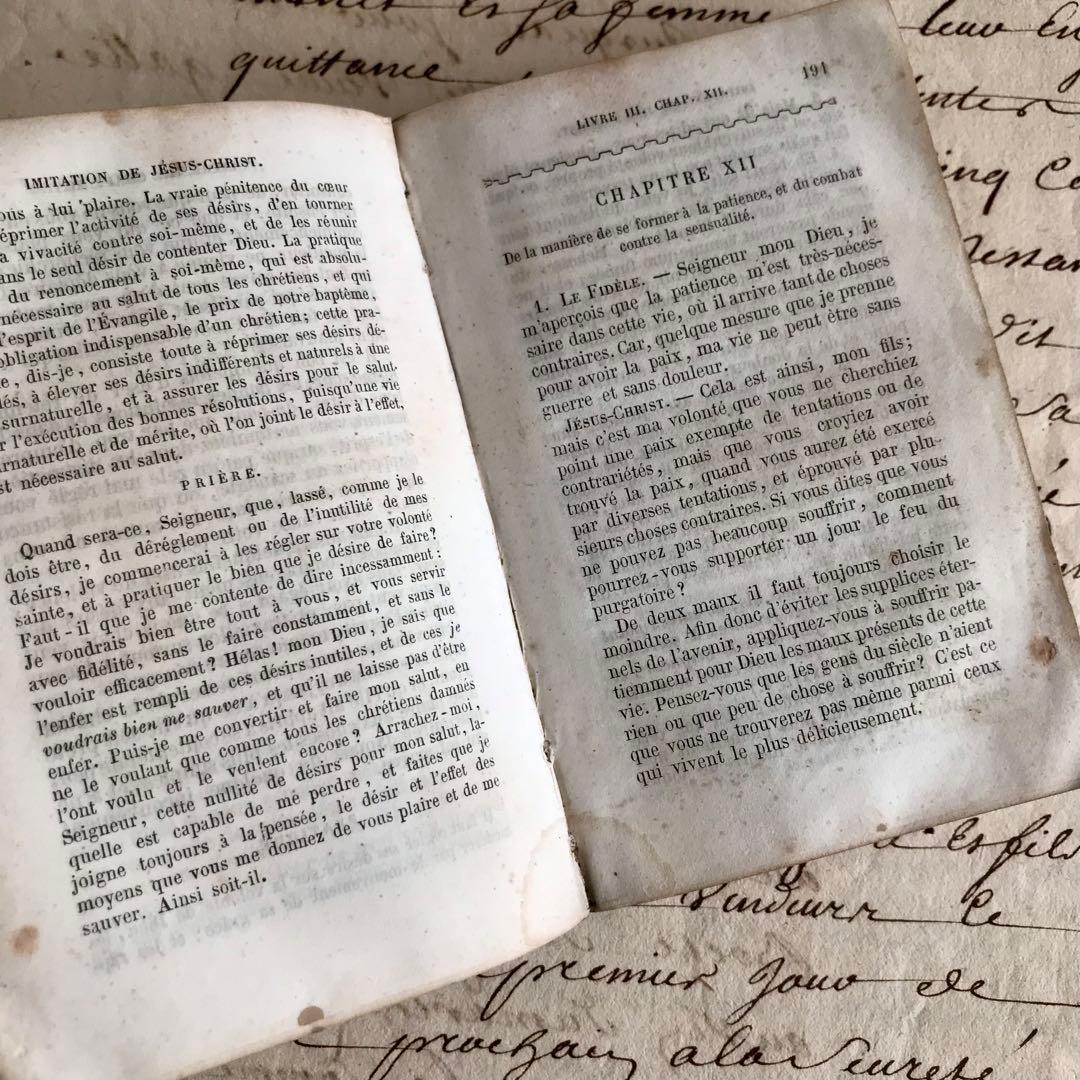 IMITATION DE JÉSUS-CHRIST.
à lui plaire. La vraie pénitence du cœur
réprimer l'activité de ses désirs, d'en tourner
vivacité contre soi-même, et de les réunir
le seul désir de contenter Dieu. La pratique
du renoncement à soi-même, qui est absolu-
nécessaire au salut de tous les chrétiens, et qui
l'esprit de l'Évangile, le prix de notre baptême,
obligation indispensable d'un chrétien; cette pra-
, dis-je, consiste toute à réprimer ses désirs dé-
à élever ses désirs indifférents et naturels à une
surnaturelle, et à assurer les désirs pour le salut
l'exécution des bonnes résolutions, puisqu'une vie
et de mérite, où l'on joint le désir à l'effet,
nécessaire au salut.
PRIÈRE.
Quand sera-ce, Seigneur, que, lassé, comme je le
dois être, du déréglement ou de l'inutilité de mes
désirs, je commencerai à les régler sur votre volonté
sainte, et à pratiquer le bien que je désire de faire?
Faut-il que je me contente de dire incessamment:
Je voudrais bien être tout à vous, et vous servir
avec fidélité, sans le faire constamment, et sans le
vouloir efficacement? Hélas! mon Dieu, je sais que
l'enfer est rempli de ces désirs inutiles, et de ces je
voudrais bien me sauver, et qu'il ne laisse pas d'être
enfer. Puis-je me convertir et faire mon salut, en
ne le voulant que comme tous les chrétiens damnés
l'ont voulu et le veulent encore? Arrachez-moi,
Seigneur, cette nullité de désirs pour mon salut, la-
quelle est capable de me perdre, et faites que je
joigne toujours à la pensée, le désir et l'effet des
moyens que vous me donnez de vous plaire et de me
sauver. Ainsi soit-il.
LIVRE III. CHAP. XII. 191
CHAPITRE XII
De la manière de se former à la patience, et du combat
contre la sensualité.
1. LE FIDÈLE. — Seigneur mon Dieu, je
m'aperçois que la patience m'est très-néces-
saire dans cette vie, où il arrive tant de choses
contraires. Car, quelque mesure que je prenne
pour avoir la paix, ma vie ne peut être sans
guerre et sans douleur.
JÉSUS-CHRIST. — Cela est ainsi, mon fils;
mais c'est ma volonté que vous ne cherchiez
point une paix exempte de tentations ou de
contrariétés, mais que vous croyiez avoir
trouvé la paix, quand vous aurez été exercé
par diverses tentations, et éprouvé par plu-
sieurs choses contraires. Si vous dites que vous
ne pouvez pas beaucoup souffrir, comment
pourrez-vous supporter un jour le feu du
purgatoire?
De deux maux il faut toujours choisir le
moindre. Afin donc d'éviter les supplices éter-
nels de l'avenir, appliquez-vous à souffrir pa-
tiemment pour Dieu les maux présents de cette
vie. Pensez-vous que les gens du siècle n'aient
rien ou que peu de chose à souffrir? C'est ce
que vous ne trouverez pas même parmi ceux
qui vivent le plus délicieusement.
et sa femme
quittance
fils
le
premier jour de
prochain a la